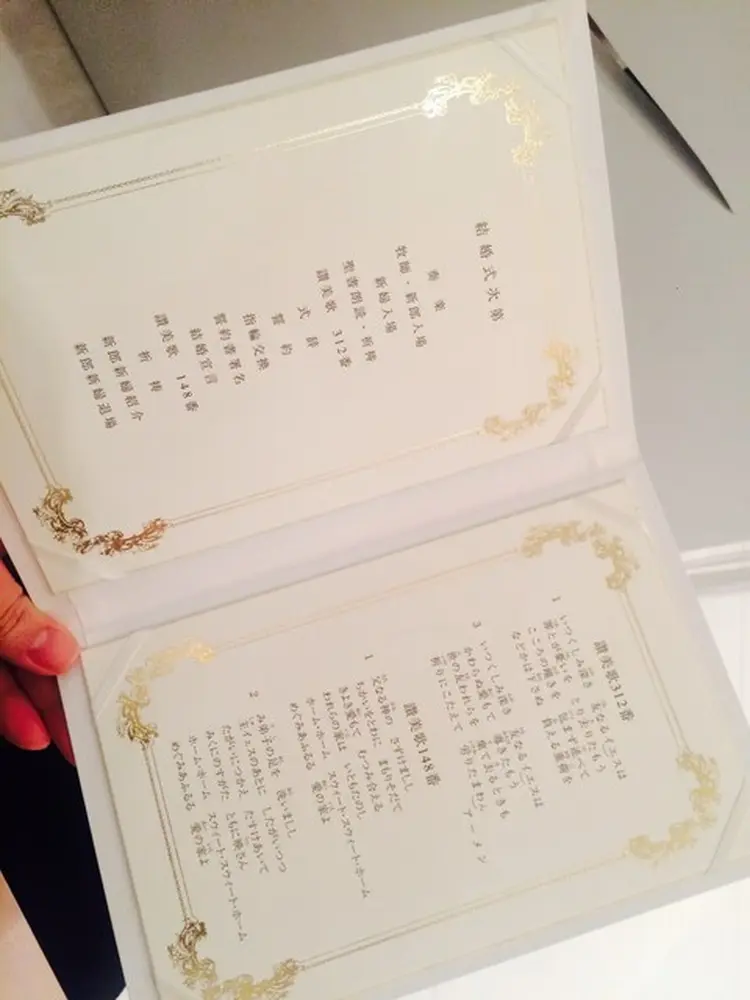 結婚式次第
奏楽
牧師・新郎入場
新婦入場
聖書朗読・祈祷
讃美歌 312番
式辞
誓約
指輪交換
誓約書署名
結婚宣言
讃美歌 148番
祈祷
新郎新婦紹介
新郎新婦退場
讃美歌312番
1 いつくしみ深き 友なるイエスは
罪とが憂いを とり去りたもう
こころの嘆きを 包まず述べて
などかは下さぬ 負える重荷を
3 いつくしみ深き 友なるイエスは
かわらぬ愛もて 導きたもう
世の友われらを 棄て去るときも
祈りにこたえて 労りたまわん アーメン
讃美歌148番
1 父なる神の さずけましし
ちかいをとわに まもりそだて
きよき愛もて むつみ合える
われらの家は いともたのし
ホーム・ホーム スウィート・スウィート・ホーム
めぐみあふるる 愛の家よ
2 み弟子の足を 洗いましし
主イエスのあとに したがいつつ
たがいにつかえ たすけあいて
みくにのすがた ともに映さん
ホーム・ホーム スウィート・スウィート・ホーム
めぐみあふるる 愛の家よ